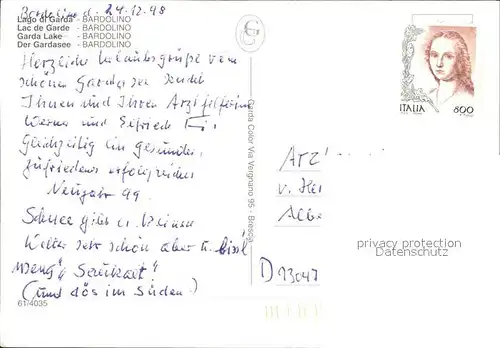 Bardolino d. 24.12.98
Lago di Garda - BARDOLINO
Lac de Garde - BARDOLINO
Garda Lake - BARDOLINO
Der Gardasee - BARDOLINO
Herzliche Urlaubsgrüße vom
schönen Gardasee sendet
Ihnen und Ihren
Werner und
Gleichzeitig ein gesundes,
zufriedenes erfolgreiches
Neujahr 99.
Schnee gibt
Wetter sehr schön aber a bissl
(und dös im Süden.)
61/4035
Garda Color Via Vergnano 95 - Brescia
ITALIA 800
Arz
v. Her
Albe
D 93047
privacy protection
Datenschutz